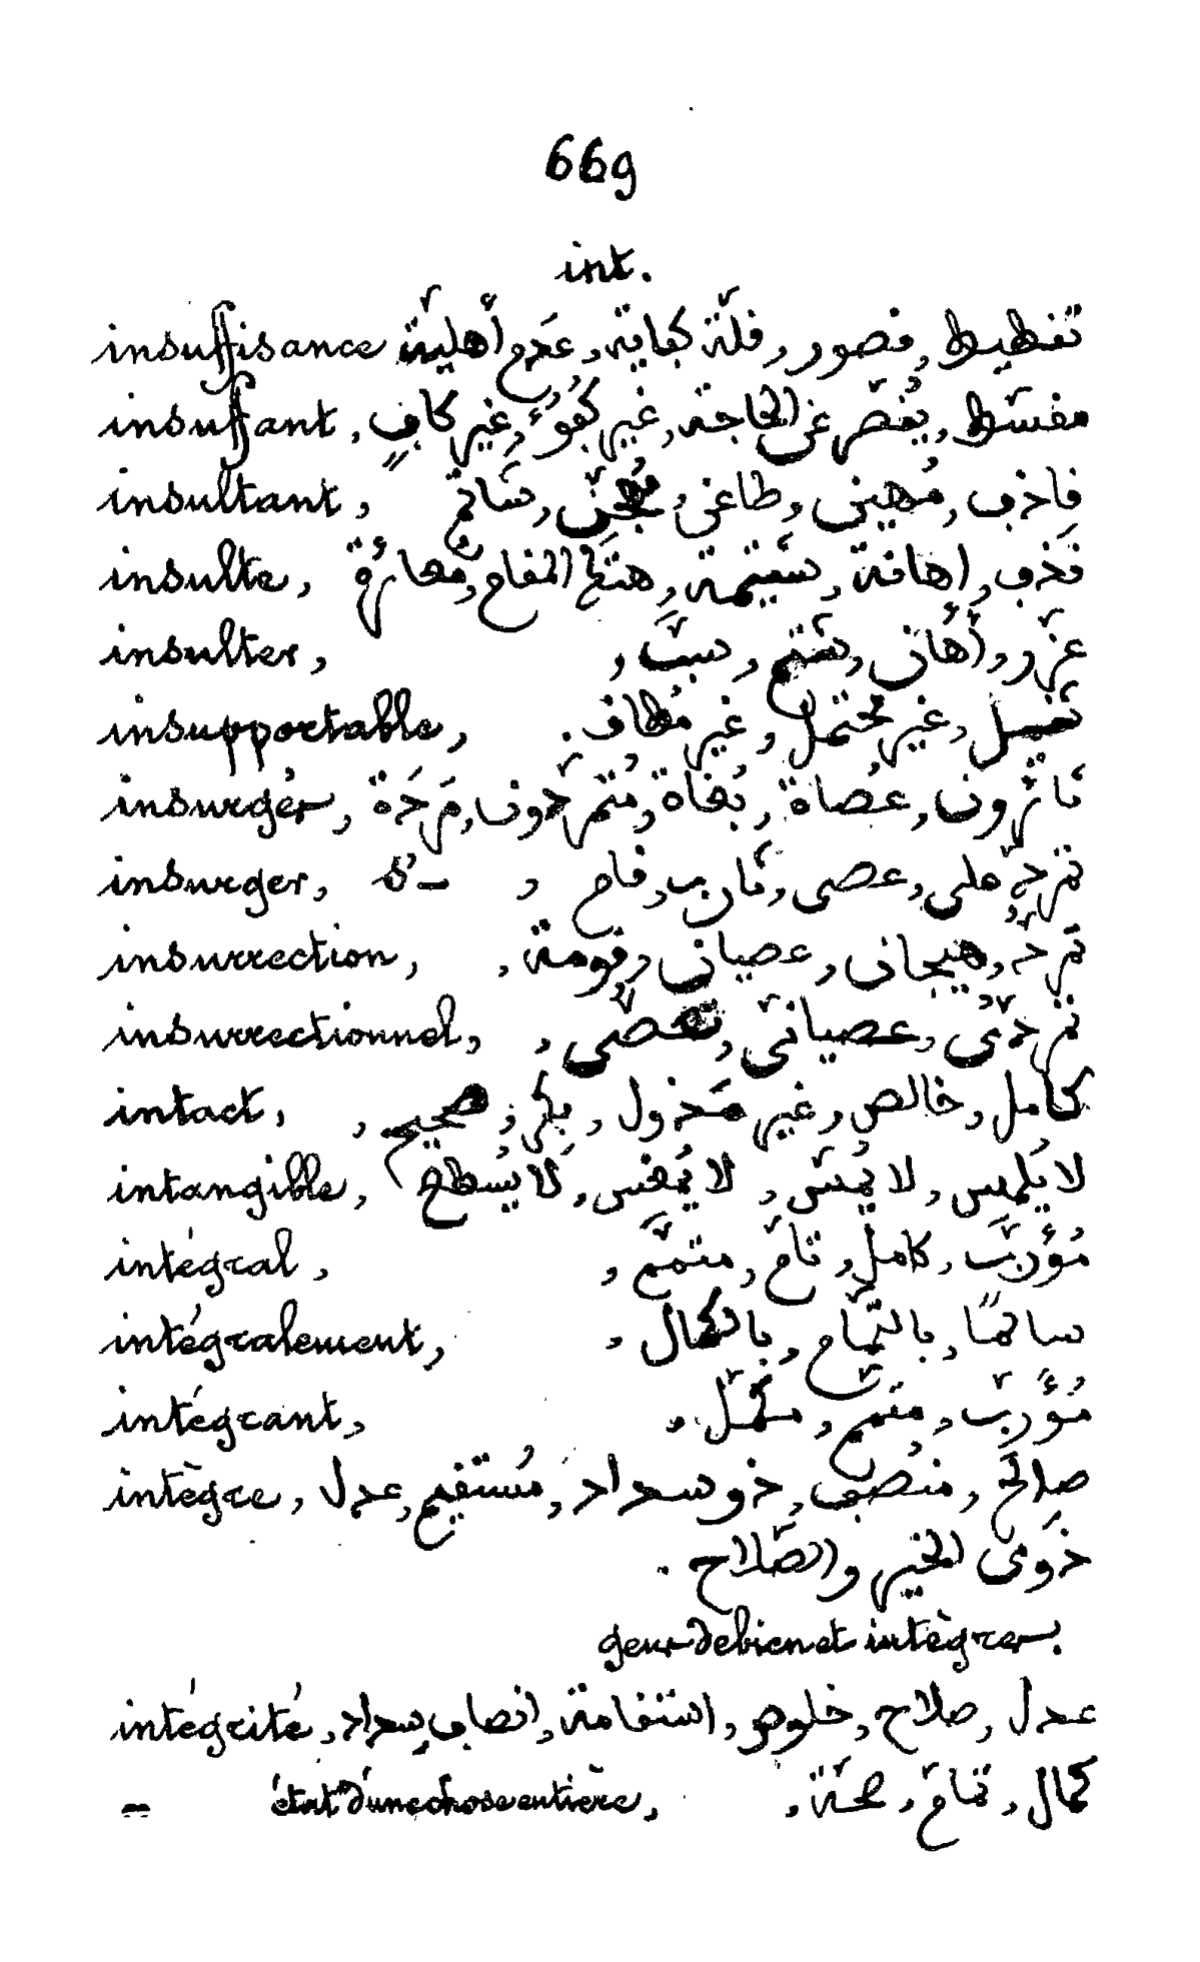 669
int.
insuffisance تقطيط, قصور, قلّة كفاية, عَدَم أهليّة
insuffant, مقسّط, يُقصّر عن الحاجة, غير كفوء, غير كافٍ
insultant, قاذف, مُهين, طاغى, شاتم
insulte, قذف, اهانة, شتيمة, هتك المقام
insulter, عزّر, أهان, شتم, سبّ,
insupportable, ثقيل, غير محتمل, غير مُطاق.
insurgér, ثائرون, عُصاة, بُغاة, مُتمرّدون, مَرَدَة
insurger, s'– تمرّد على, عصى, قام,
insurrection, تمرّد, هيجان, عصيان, قومة,
insurrectionnel, تمرّدىّ, عصيانىّ,
intact, كامل, خالص, غير مَخذول, بِكر, صحيح,
intangible, لا يُلمس, لا يُمسّ, لا
intégral, مُؤرّب, كامل, تامّ, متمّم,
intégralement, سالمًا, بالتّمام, بالكمال,
intégrant, مُؤرّب, متمّم, مكمّل,
intègre, صالح, منصف, ذو سداد, مُستقيم, عدل
ذَوى الخير والصّلاح.
gens de bien et intègres.
intégrité, عدل, صلاح, خلوص, استقامة, انصاف, سداد
– état d'une chose entière, كمال, تمام, صحّة,